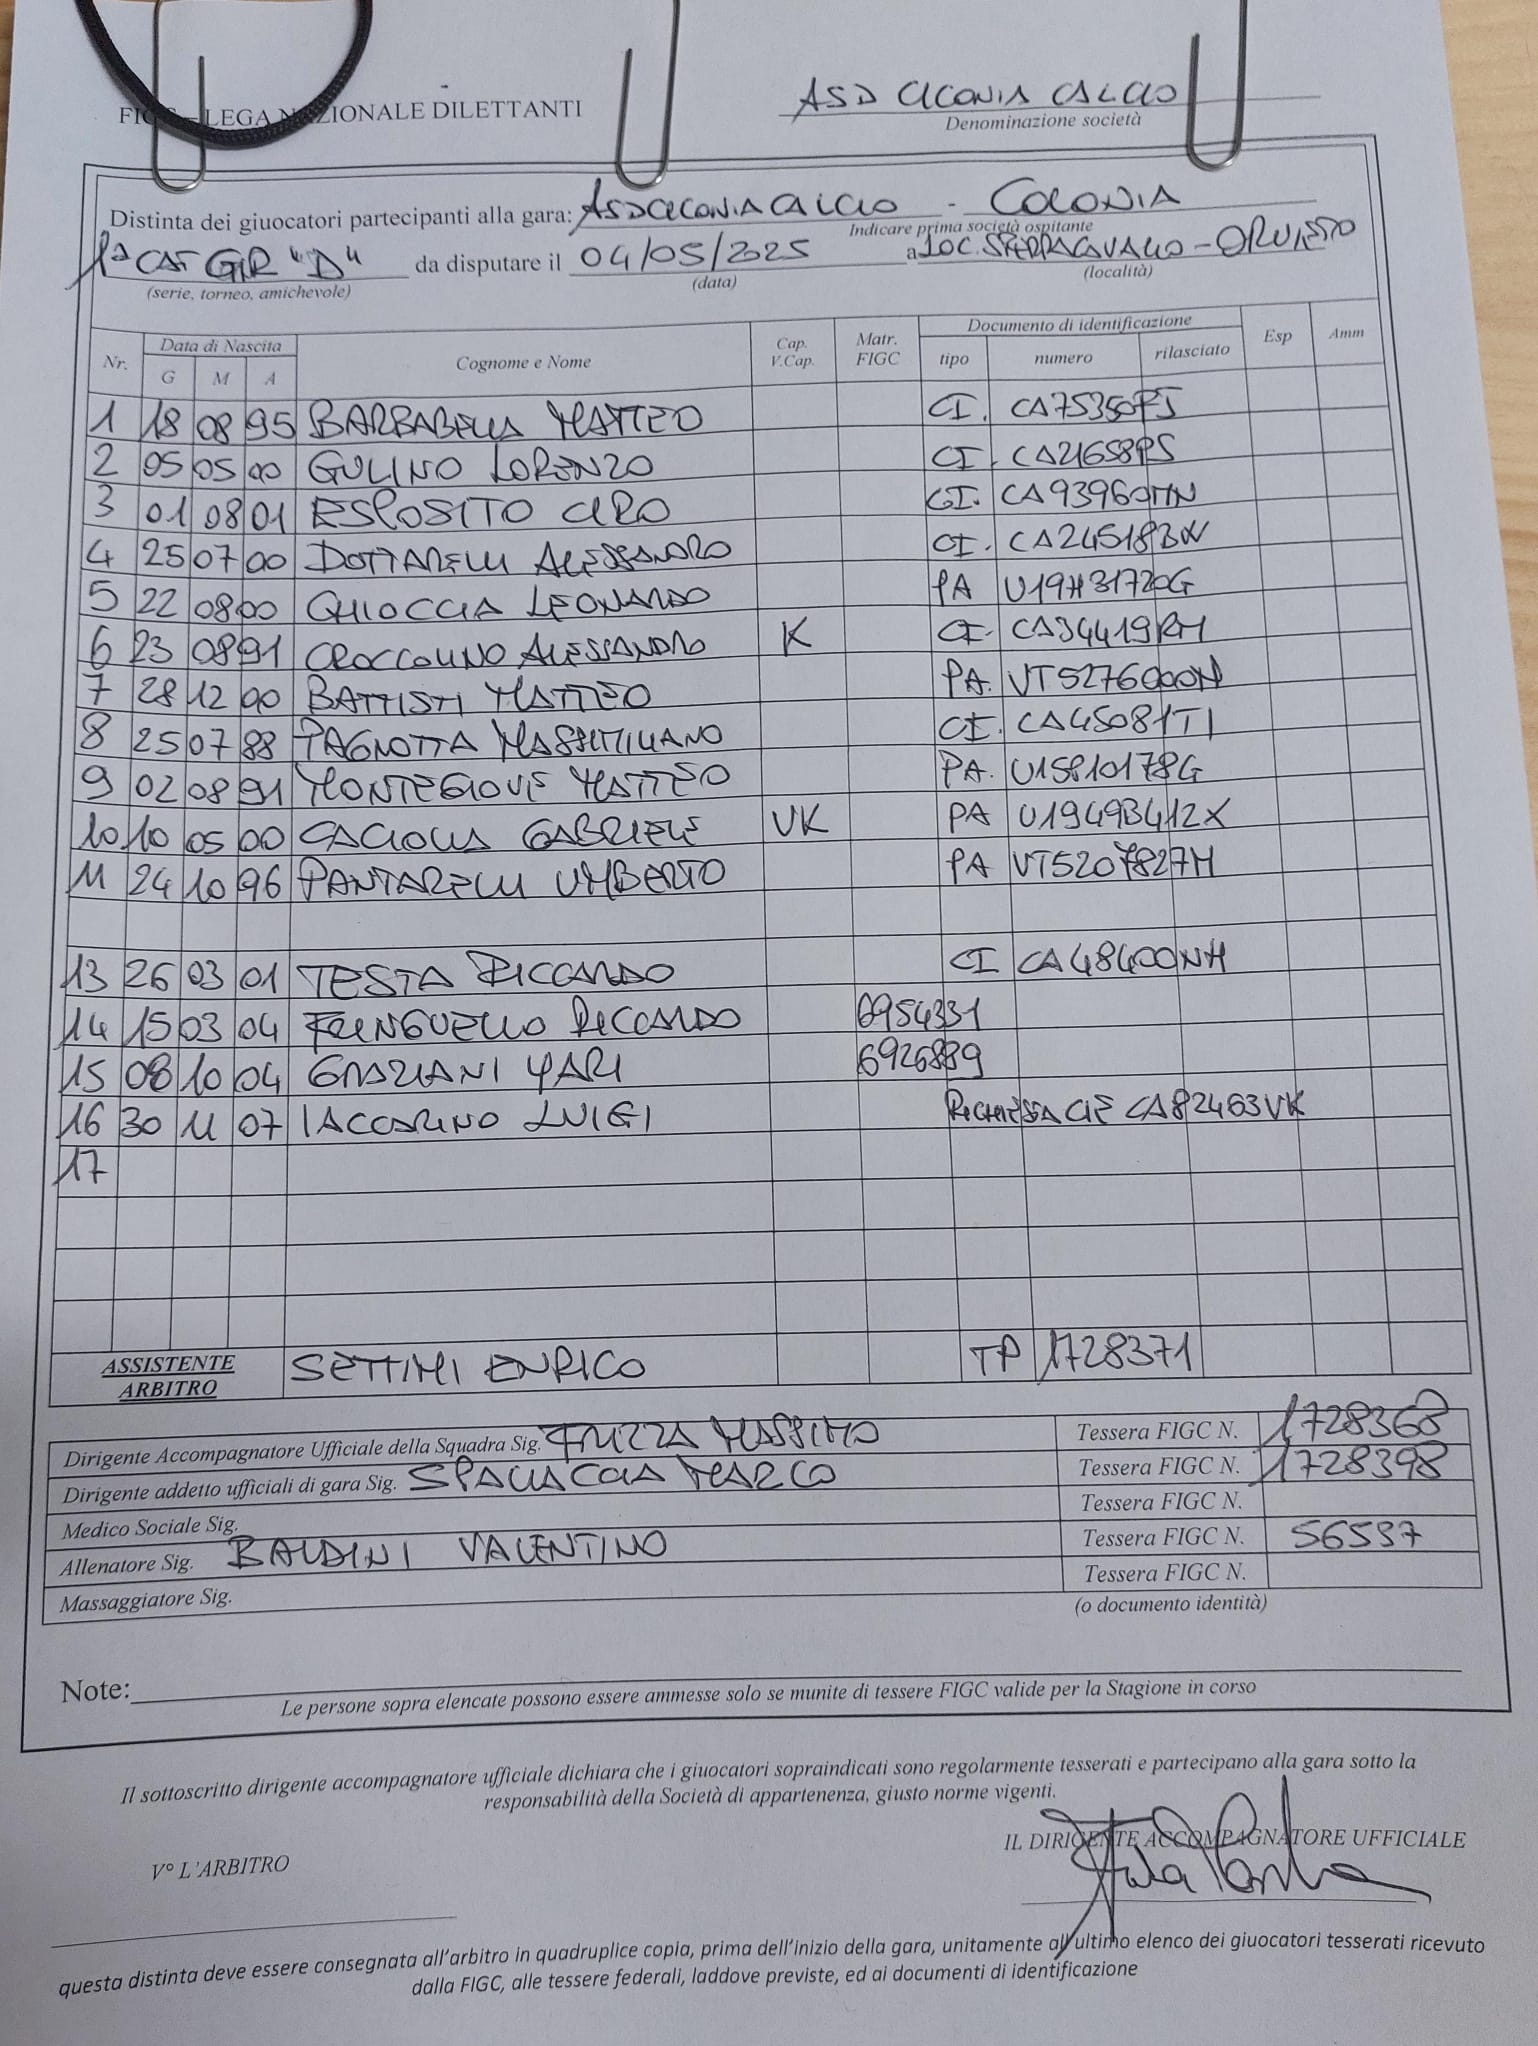 LEGA NAZIONALE DILETTANTI
ASD CICONIA CALCIO
Denominazione società
Distinta dei giuocatori partecipanti alla gara: ASD CICONIA CALCIO - COLONIA
Indicare prima società ospitante
1ª CAT GIR "D" da disputare il 04/05/2025 a LOC. SFERRACAVALLO - ORVIETO
(serie, torneo, amichevole) (data) (località)
Nr. Data di Nascita G M A Cognome e Nome Cap. V.Cap. Matr. FIGC Documento di identificazione tipo numero rilasciato Esp Amm
1 18 08 95 BARBABELLA MATTEO CI. CA75350PJ
2 05 05 00 GULINO LORENZO CI. CA21658PS
3 01 08 01 ESPOSITO CIRO CI. CA93960MN
4 25 07 00 DOTTARELLI ALESSANDRO CI. CA24518BW
5 22 08 00 CHIOCCIA LEONARDO PA U19H31720G
6 23 08 91 CROCCOLINO ALESSANDRO K CI. CA34419RM
7 28 12 00 BATTISTI MATTEO PA. VT5276000N
8 25 07 88 PAGNOTTA MASSIMILIANO CI. CA45081TI
9 02 08 91 MONTEGIOVE MATTEO PA. U15810178G
10 10 05 00 CACIOLLA GABRIELE VK PA U19493412X
11 24 10 96 PANTARELLI UMBERTO PA VT5207827M
13 26 03 01 TESTA RICCARDO CI CA48400NH
14 15 03 04 FRINGUELLO RICCARDO 6954331
15 08 10 04 GRAZIANI YARI 6926889
16 30 11 07 IACCARINO LUIGI RICHIESTA CIE CA82463VK
17
ASSISTENTE ARBITRO SETTIMI ENRICO TP 1728371
Dirigente Accompagnatore Ufficiale della Squadra Sig. FRIZZA MASSIMO Tessera FIGC N. 1728368
Dirigente addetto ufficiali di gara Sig. SPALLACCIA MARCO Tessera FIGC N. 1728398
Medico Sociale Sig. Tessera FIGC N.
Allenatore Sig. BALDINI VALENTINO Tessera FIGC N. 56537
Massaggiatore Sig. Tessera FIGC N.
(o documento identità)
Note:
Le persone sopra elencate possono essere ammesse solo se munite di tessere FIGC valide per la Stagione in corso
Il sottoscritto dirigente accompagnatore ufficiale dichiara che i giuocatori sopraindicati sono regolarmente tesserati e partecipano alla gara sotto la
responsabilità della Società di appartenenza, giusto norme vigenti.
IL DIRIGENTE ACCOMPAGNATORE UFFICIALE
V° L'ARBITRO
questa distinta deve essere consegnata all'arbitro in quadruplice copia, prima dell'inizio della gara, unitamente all'ultimo elenco dei giuocatori tesserati ricevuto
dalla FIGC, alle tessere federali, laddove previste, ed ai documenti di identificazione